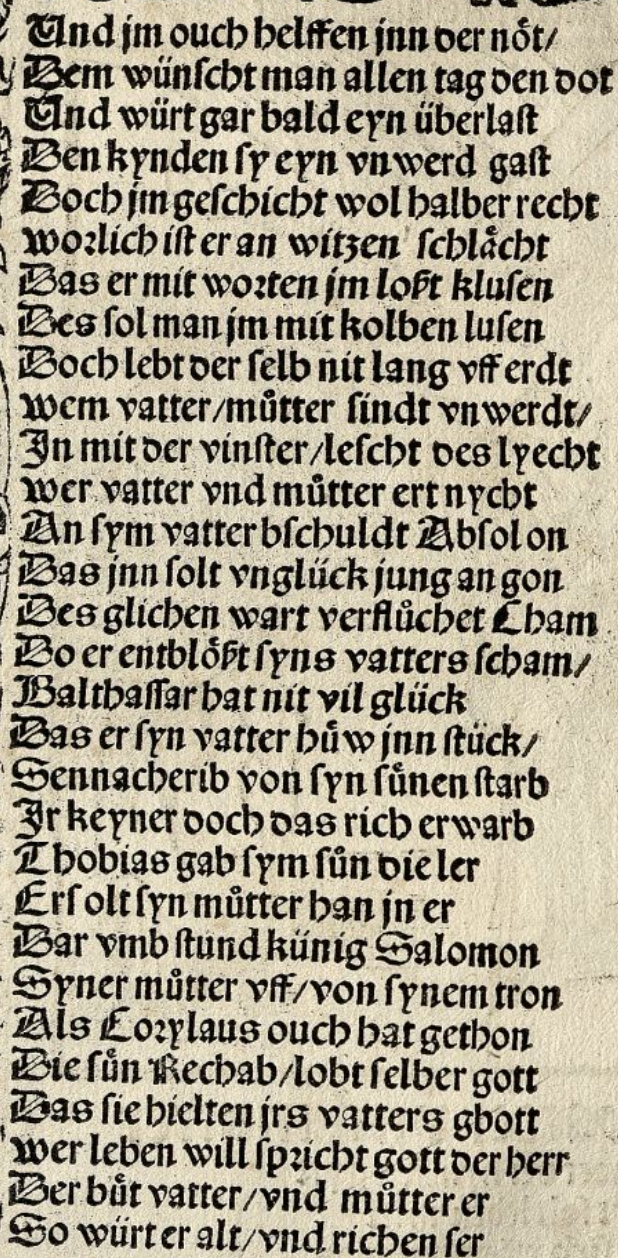 Und jm ouch helffen jnn der nôt/
Dem wünscht man allen tag den dot
Und würt gar bald eyn überlast
Den kynden sy eyn vnwerd gast
Doch jm geschicht wol halber recht
worlich ist er an witzen schlâcht
Das er mit worten jm loßt klusen
Des sol man jm mit kolben lusen
Doch lebt der selb nit lang vff erdt
wem vatter/můtter sindt vnwerdt/
In mit der vinster/lescht des lyecht
wer vatter vnd můtter ert nycht
An sym vatter bschuldt Absolon
Das jnn solt vnglück jung an gon
Des glichen wart verflůchet Cham
Do er entblôßt syns vatters scham/
Balthassar hat nit vil glück
Das er syn vatter hůw jnn stück/
Sennacherib von syn sůnen starb
Ir keyner doch das rich erwarb
Thobias gab sym sůn die ler
Er solt syn můtter han jn er
Dar vmb stund künig Salomon
Syner můtter vff/von synem tron
Als Corylaus ouch hat gethon
Die sůn Rechab/lobt selber gott
Das sie hielten jrs vatters gbott
wer leben will spricht gott der herr
Der bůt vatter/vnd můtter er
So würt er alt/vnd richen ser